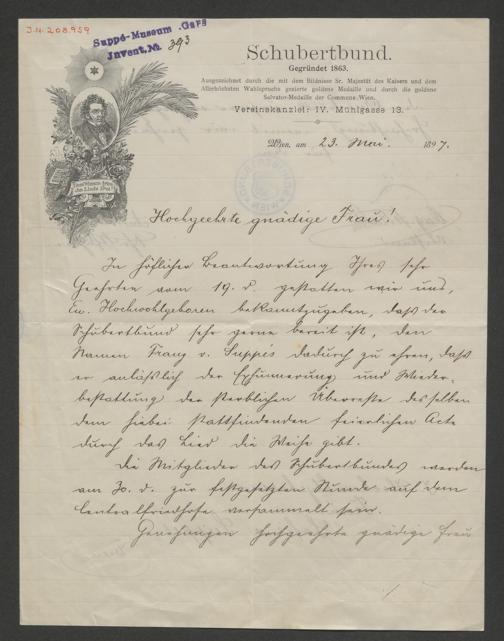 J.N. 208.959
Suppé-Museum Gars
Invent. No 393
Schubertbund.
Gegründet 1863.
Ausgezeichnet durch die mit dem Bildnisse Sr. Majestät des Kaisers und dem
Allerhöchsten Wahlspruche gezierte goldene Medaille und durch die goldene
Salvator-Medaille der Commune Wien.
Vereinskanzlei: IV. Mühlgasse 13.
Wien, am 23. Mai. 1897.
Hochgeehrte gnädige Frau!
In höflicher Beantwortung Ihres sehr
Geehrten vom 19. d. gestatten wir uns,
Eu. Hochwohlgeboren bekanntzugeben, daß der
Schubertbund sehr gerne bereit ist, den
Namen Franz v. Suppés dadurch zu ehren, daß
er anläßlich der Exhumierung und Wieder-
bestattung der sterblichen Überreste desselben
dem hiebei stattfindenden feierlichen Acte
durch das Lied die Weihe gibt.
Die Mitglieder des Schubertbundes werden
am 30. d. zur festgesetzten Stunde auf dem
Centralfriedhofe versammelt sein.
Genehmigen hochgeehrte gnädige Frau